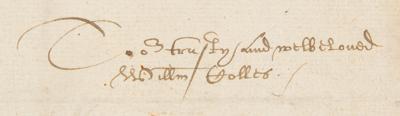 To o:r trusty and welbeloved
Willm Bolles.